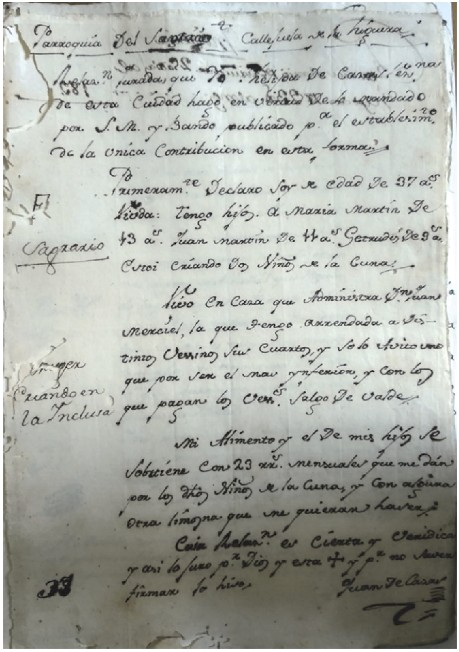 Parroquia Del Sagrario Callejuela de la higuera
Relaz.n jurada, que Yo De
de esta Ciudad hago en virtud de lo mandado
por S. M. y Bando publicado p.a el establesim.to
de la Unica Contribucion en esta forma
Primeram.te Declaro soy de edad De 37 a.s
Viuda: tengo hijos á Maria Martin De
13 a.s Juan Martin De 11 a.s Getrudis De 9 a.s
Estoi criando Dos Niños de la Cuna
Sagrario
Vivo en Casa que Administra D.n Juan
la que tengo arrendada a Dis-
tintos Vessinos sus Cuartos, y solo Avito uno
que por ser el mas ynferior, y con los
que pagan los Vess.s salgo De valde
Muger
Criando en
la Inclusa
Mi Alimento y el De mis hijos se
sobstiene Con 23 rr.s mensuales que me dán
por los dhos Niños de la Cuna, y Con alguna
otra limosna que me quieran haser
Cuia Relaz.n es Cierta y Veridica
y asi lo juro p.r Dios y esta + y p.r no saver
firmar lo hiso
Juan De